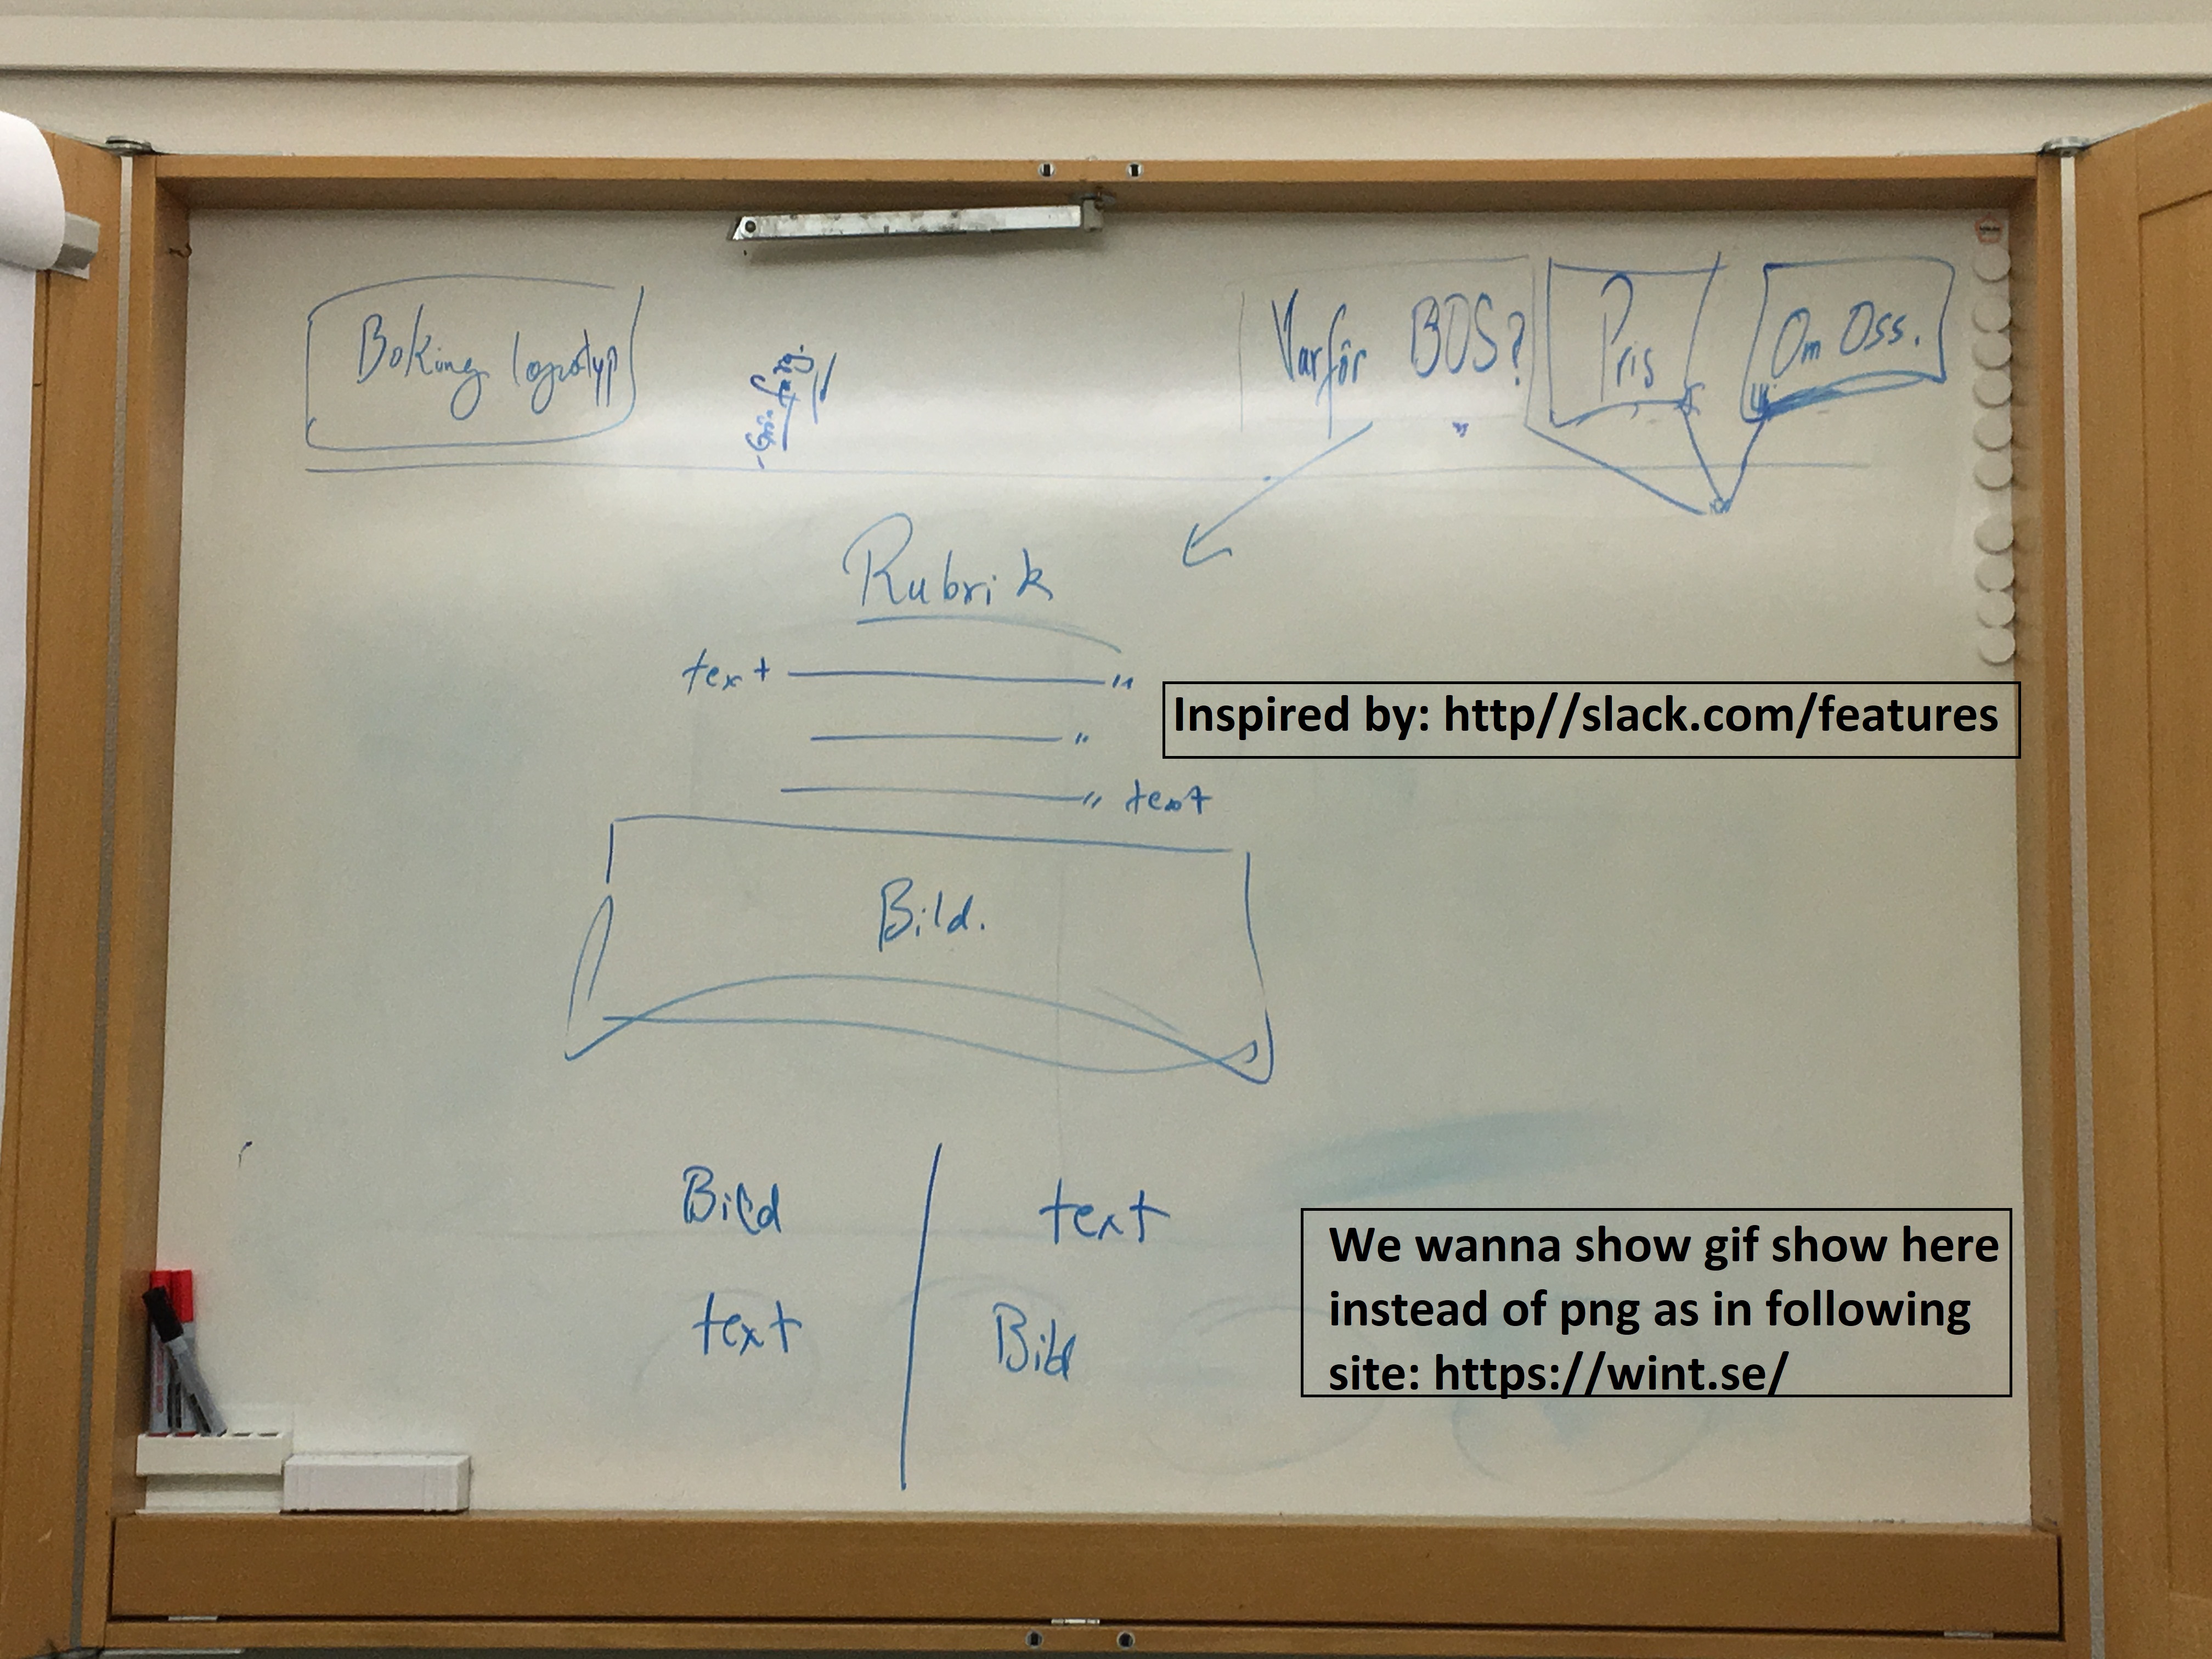 Boking logotyp
Varför BOS?
Pris
Om Oss.
Rubrik
text "
"
" text
Inspired by: http//slack.com/features
Bild.
Bild text
text Bild
We wanna show gif show here
instead of png as in following
site: https://wint.se/